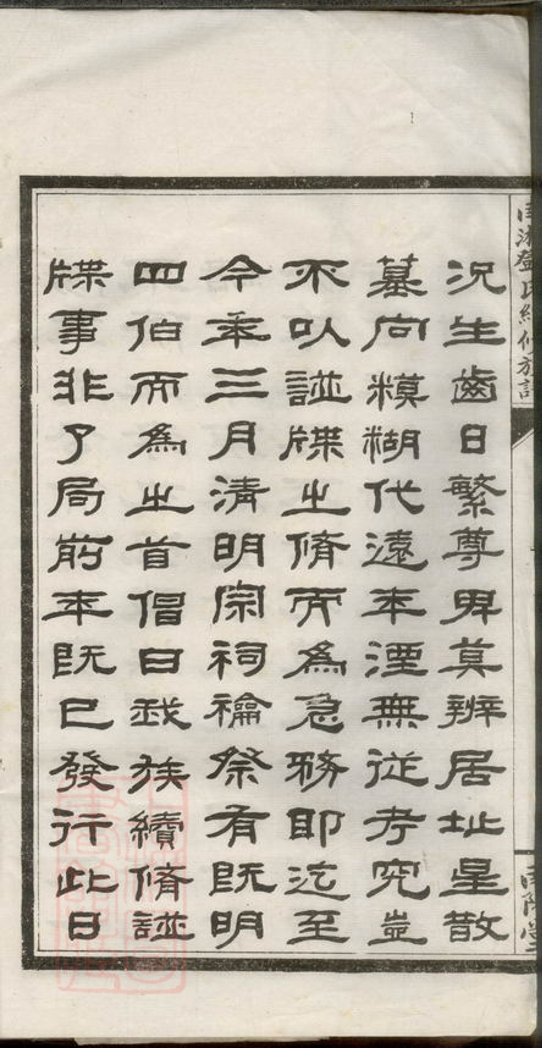 况生齒日繁尊卑莫辨居址星散
墓向糢糊代遠年湮無從考究豈
不以譜牒之脩而為急務耶迄至
今年三月清明宗祠禴祭有既明
四伯而為之首倡曰我族續脩譜
牒事非了局前年既已發行此日